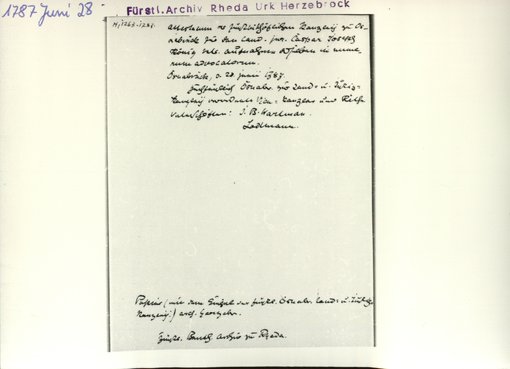 1787 Juni 28
Fürstl. Archiv Rheda Urk Herzebrock
attestatum der fürstbischöflichen Kanzley zu Os-
nabrück für den Cand. jur. Caspar Joseph
König, dessen aufnahme in nume-
rum advocatorum.
Osnabrück, d. 28. Juni 1787.
Osnabr. zur Land- u. Justiz-
Kanzley verordnete Vice-Kanzler und Räthe
Unterschriften: J. B. Hartman.
Lodtmann.
Papier (mit dem Siegel der fürstl. Osnabr. Land- u. Justiz-
Kanzley)
Fürstl. Benth. Archiv zu Rheda.